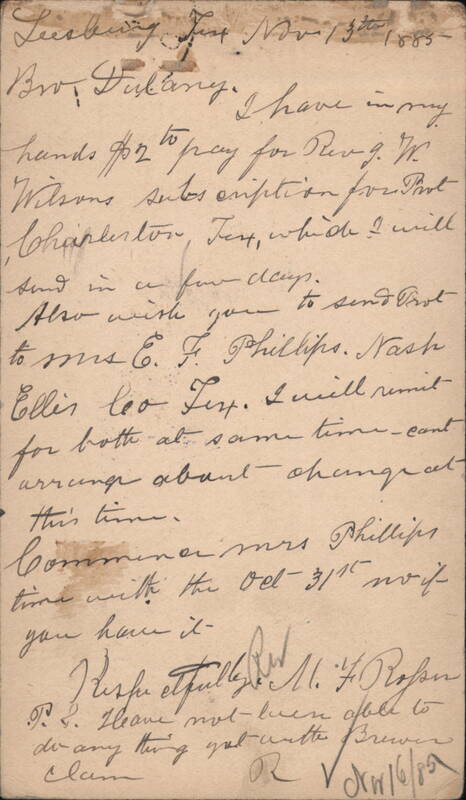 Leesburg Tex Nov 13th 1885
Bro, Dulany.
I have in my
hands $2 to pay for Rev J. W.
Wilsons subscription for Prot
Charleston, Tex, which I will
send in a few days.
Also wish you to send Prot
to Mrs E. F. Phillips. Nash
Ellis Co Tex. I will remit
for both at same time - cant
arrange about change at
this time.
Commence Mrs Phillips
time with the Oct 31st no if
you have it
Respectfully. Rev M. F. Rosser
P. S. Have not been able to
do any thing yet with Brewer
claim R Nov 16/85